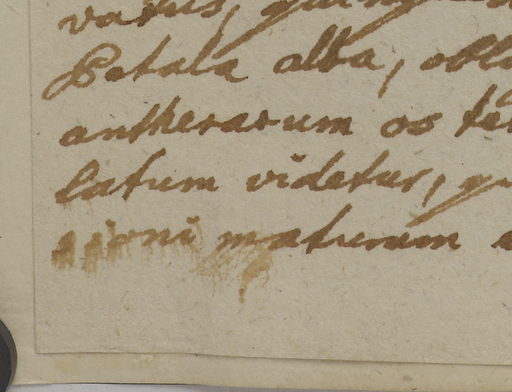 Petala alba, obl
antherarum os te
latum videtur, qu
maturam